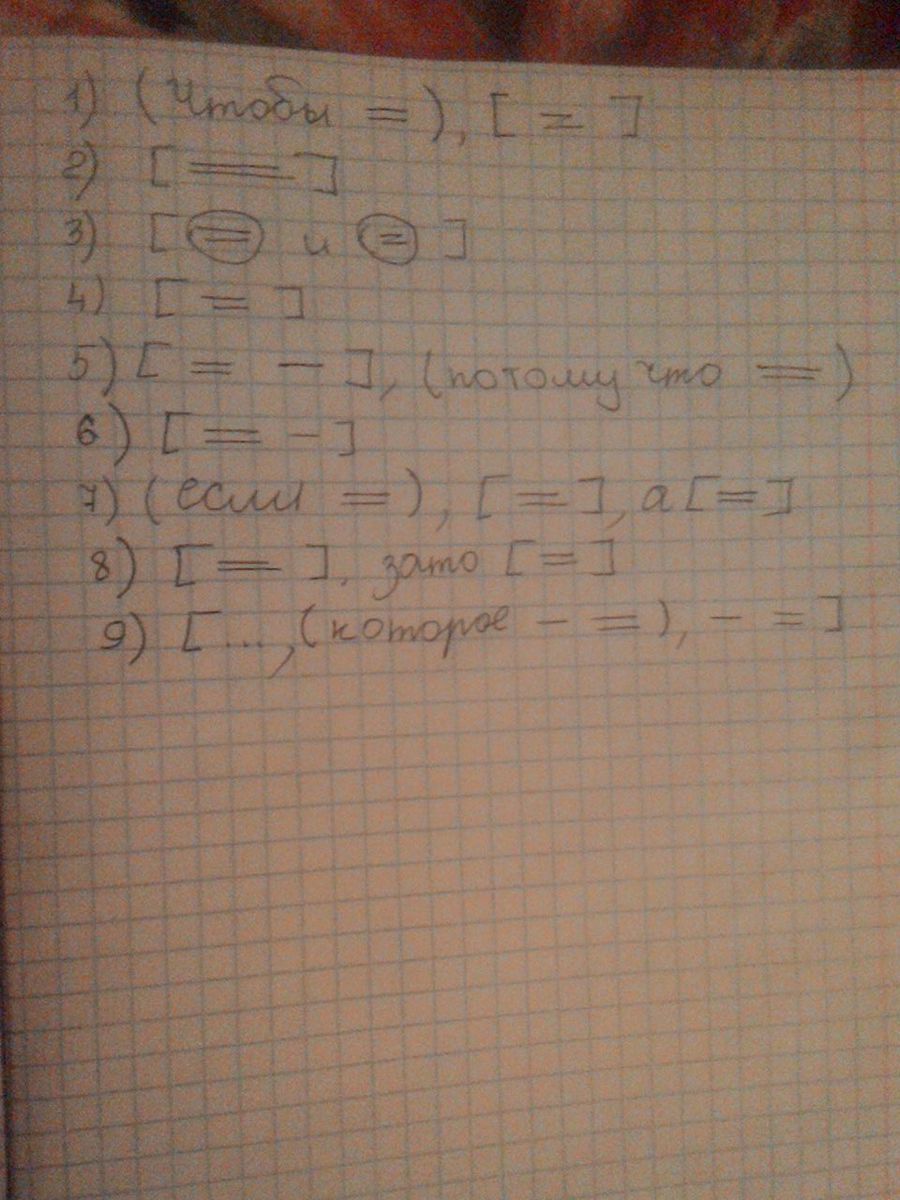 1) (Чтобы =), [ = ]
2) [ = ]
3) [ = и = ]
4) [ = ]
5) [ = - ], (потому что = )
6) [ = - ]
7) (если = ), [ = ], а [ = ]
8) [ = ], зато [ = ]
9) [ ..., (которое - = ), - = ]